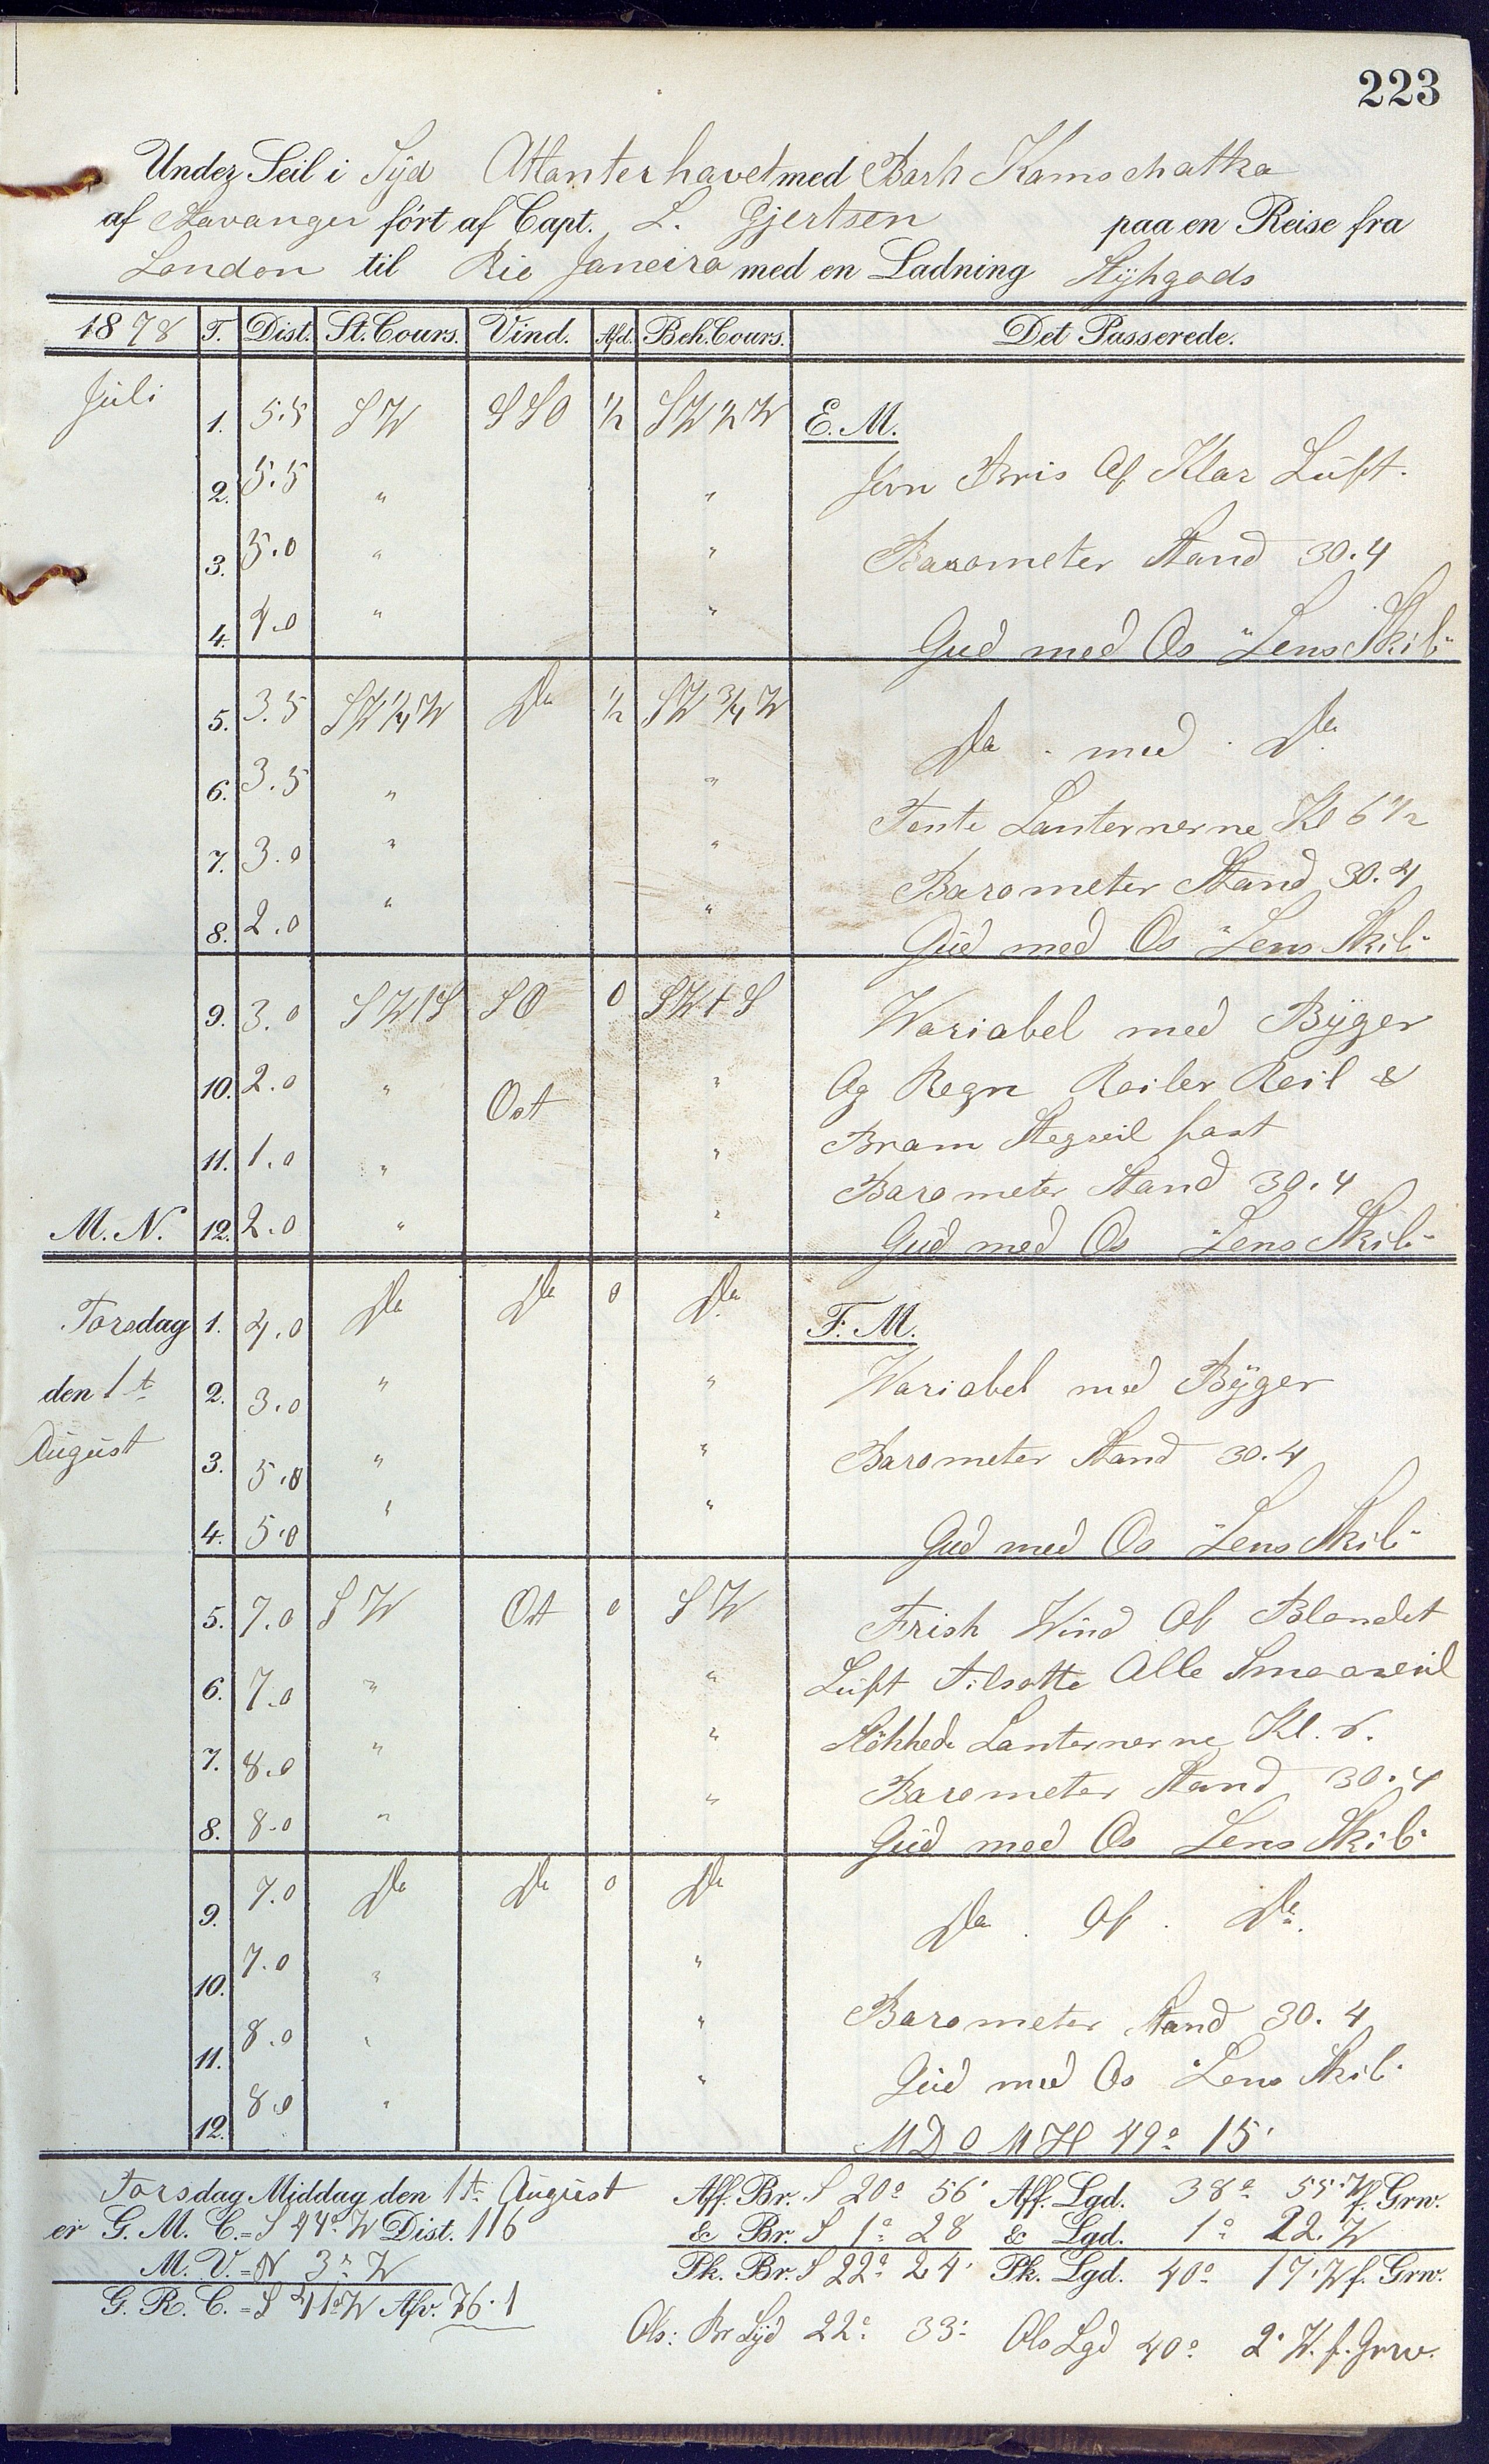 223
Under Seil i Syd Atlanterhavet med Bark Kamschatka
af Stavanger ført af Capt. L. Gjertsen paa en Reise fra
London til Rio Janeiro med en Ladning Stÿkgods
1878 T. Dist. St. Cours. Vind. Afd. Beh. Cours. Det Passerede.
Juli 1. 5.5 SW SSO ½ SW½W E. M.
2. 5.5 " " Jevn Bris Af Klar Luft.
3. 5.0 " " Barometer Stand 30.4
4. 4.0 " " Gud med Os "Lens Skib"
5. 3.5 SW¼W Do ½ SW¾W Do med Do
6. 3.5 " " Tente Lanternerne Kl 6½
7. 3.0 " " Barometer Stand 30.4
8. 2.0 " " Gud med Os "Lens Skib"
9. 3.0 SWtS SO 0 SWtS Wariabel med Bÿger
10. 2.0 " Ost " Og Regn Roiler Reil &
11. 1.0 " " Bram Stegseil fast
Barometer Stand 30.4
M. N. 12. 2.0 " " Gud med Os "Lens Skib"
Torsdag 1. 4.0 Do Do 0 Do F. M.
den 1t 2. 3.0 " " Wariabel med Bÿger
August 3. 5.0 " " Barometer Stand 30.4
4. 5.0 " " Gud med Os "Lens Skib"
5. 7.0 SW Ost 0 SW Frisk Wind Af Blandet
6. 7.0 " " Luft Tilsatte Alle Smaaseil
7. 8.0 " " Slökkede Lanternerne Kl. 6.
Barometer Stand 30.4
8. 8.0 " " Gud med Os Lens Skib"
9. 7.0 Do Do 0 Do Do . Af . Do.
10. 7.0 " "
11. 8.0 " " Barometer Stand 30.4
Gud med Os Lens Skib"
12. 8.0 " " M D O M H 49° 15'
Torsdag Middag den 1t August Aff. Br. S 20° 56' Aff. Lgd. 38° 55' W f. Grw.
er G. M. C. = S 44° W Dist. 116 & Br. S 1° 28 & Lgd. 1° 22' W
M. V. = N 3° W Pk. Br. S 22° 24' Pk. Lgd. 40° 17' W f. Grw.
G. R. C. = S 41° W Afv. 76.1
Obs: Br Syd 22° 33' Obs Lgd 40° 2' W. f. Grw.